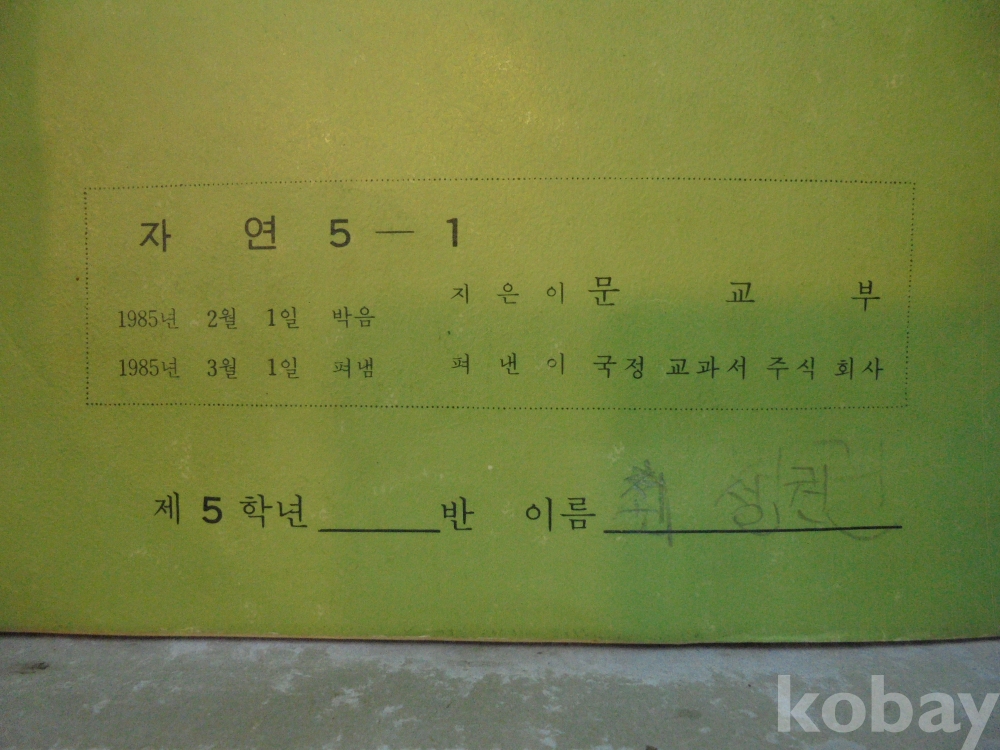 자 연 5 — 1
1985년 2월 1일 박음
1985년 3월 1일 펴냄
지 은 이 문 교 부
펴 낸 이 국정 교과서 주식 회사
제 5 학년 ______ 반 이름
kobay